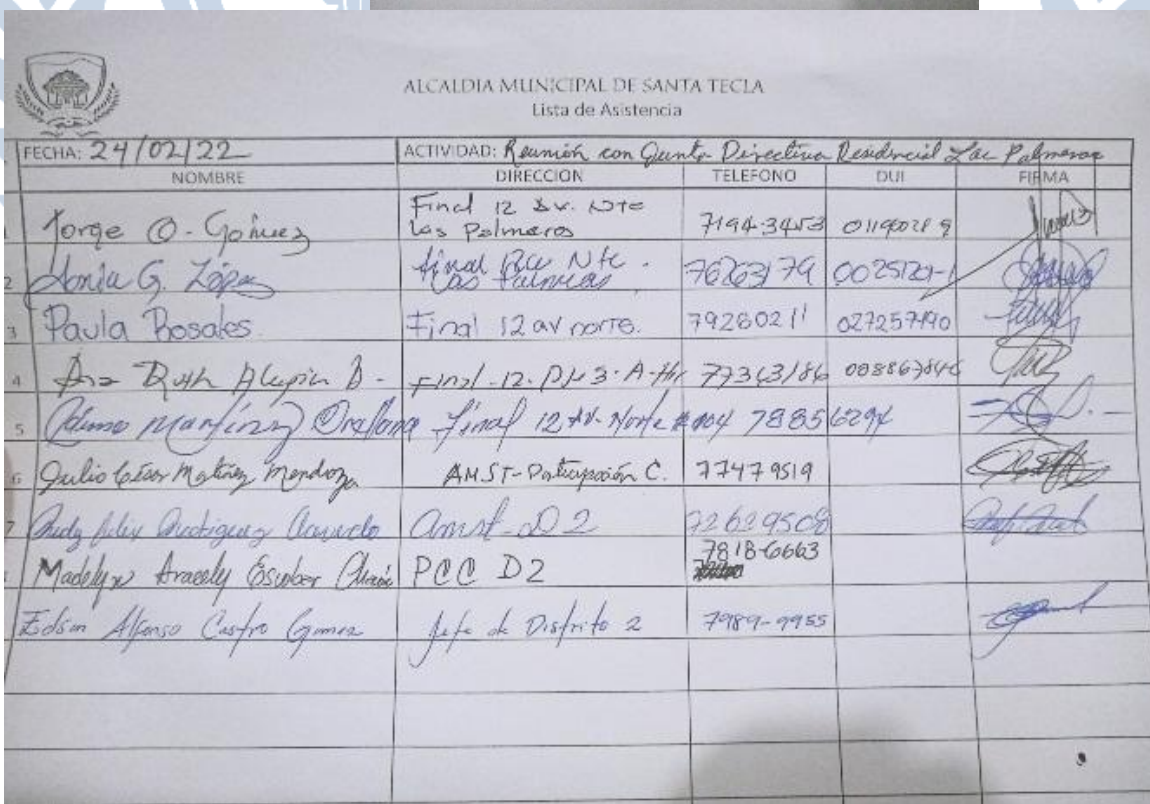 ALCALDIA MUNICIPAL DE SANTA TECLA
Lista de Asistencia
FECHA: 24/02/22 ACTIVIDAD: Reunión con Junta Directiva Residencial Las Palmeras
NOMBRE DIRECCION TELEFONO DUI FIRMA
Jorge O. Gómez Final 12 Av. Nte Las Palmeras 7194-3453
2 Sonia G. López final Nte. Las Palmeras 76263179
3 Paula Rosales Final 12 av norte. 79280211
4 Ana Ruth B. Final-12- 77363186
5 Martínez Orellana final 12 Av. Norte 78856294
6 Julio César Martínez Mendoza AMST-Participación C. 77479519
7 Rudy Rodriguez Amst-D2 72629508
Madelyn Aracely Escobar PCC D2 7818-6663
Edson Alfonso Castro Gomez Jefe de Distrito 2 7989-9955